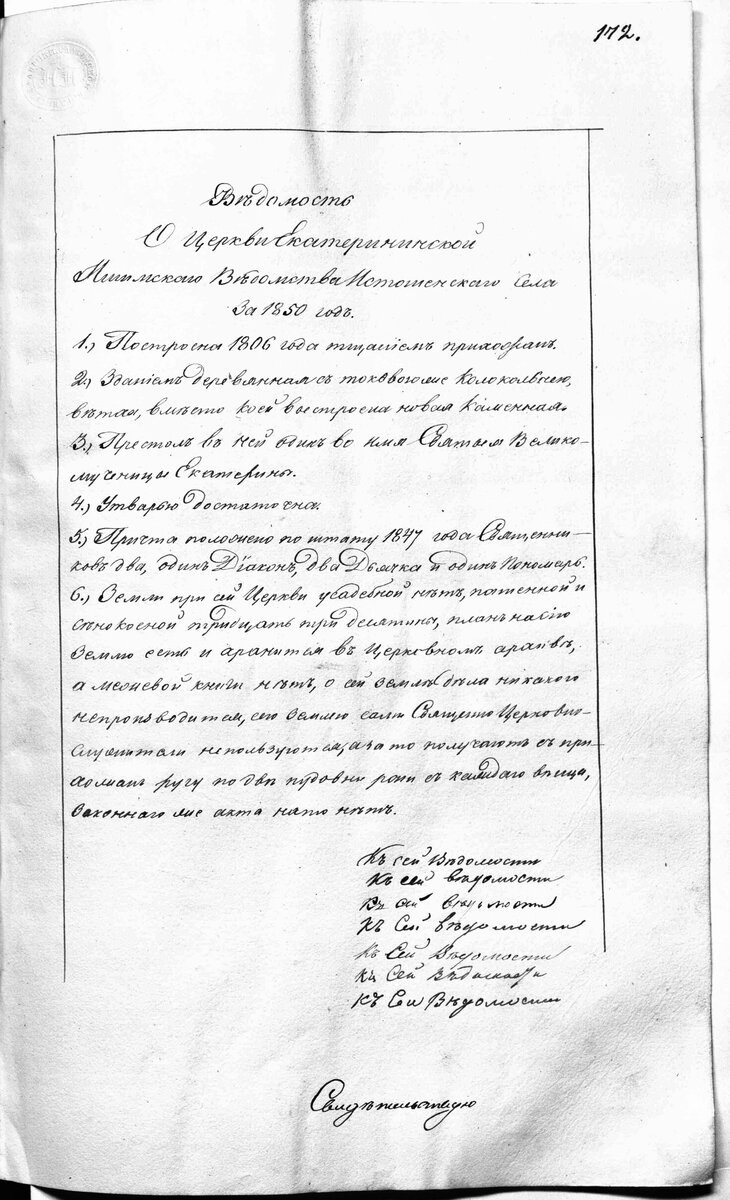 172.
Вѣдомость
О Церкви Екатерининской
Ишимскаго Вѣдомства Истошенскаго Села
За 1850 годъ.
1.) Построена 1806 года тщаніемъ прихожанъ.
2.) Зданіемъ деревянная съ таковою же Колокольнею,
вѣтха, вмѣсто коей выстроена новая Каменная.
3.) Престолъ въ ней одинъ во имя Святыя Велико-
мученицы Екатерины.
4.) Утварью достаточна.
5.) Причта положено по штату 1847 года Священни-
ковъ два, одинъ Діаконъ, два Дьячка и одинъ Пономарь.
6.) Земли при сей Церкви усадебной нѣтъ, пашенной и
сѣнокосной тридцать три десятины, планъ на сію
Землю есть и хранится въ Церковномъ архивѣ,
а межевой книги нѣтъ, о сей землѣ дѣла никакого
непроизводится, сею Землею сами Священно Церковно-
служители непользуются, а за то получаютъ съ при-
хожанъ ругу по двѣ пудовки ржи съ каждаго вѣнца,
Законнаго же акта на то нѣтъ.
Къ сей Вѣдомости
Къ сей вѣдомости
Къ сей вѣдомости
Къ Сей вѣдомости
Къ Сей Вѣдомости
Къ Сей Вѣдомости
Къ Сей Вѣдомости
Свидѣтельствую